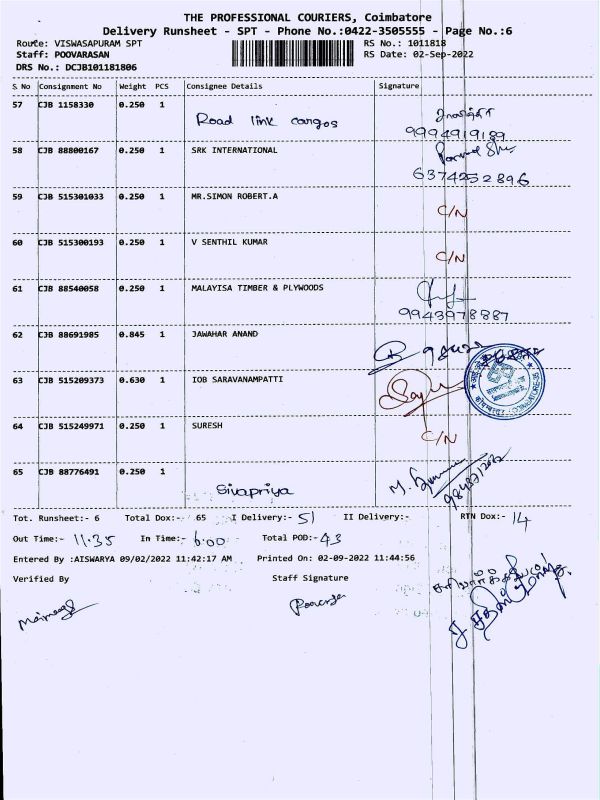 THE PROFESSIONAL COURIERS, Coimbatore
Delivery Runsheet - SPT - Phone No.:0422-3505555 - Page No.:6
Route: VISWASAPURAM SPT
RS No.: 1011818
Staff: POOVARASAN
RS Date: 02-Sep-2022
DRS No.: DCJB101181806
S.No Consignment No Weight PCS Consignee Details Signature
57 CJB 1158330 0.250 1 Road link cargos
9994919189
58 CJB 88800167 0.250 1 SRK INTERNATIONAL
6374252896
59 CJB 515301033 0.250 1 MR.SIMON ROBERT.A C/N
60 CJB 515300193 0.250 1 V SENTHIL KUMAR C/N
61 CJB 88540058 0.250 1 MALAYISA TIMBER & PLYWOODS
9943978887
62 CJB 88691985 0.845 1 JAWAHAR ANAND
63 CJB 515209373 0.630 1 IOB SARAVANAMPATTI
64 CJB 515249971 0.250 1 SURESH C/N
65 CJB 88776491 0.250 1 Sivapriya
Tot. Runsheet:- 6 Total Dox:- 65 I Delivery:- 51 II Delivery:- RTN Dox:- 14
Out Time:- 11.35 In Time:- 6.00 Total POD:- 43
Entered By :AISWARYA 09/02/2022 11:42:17 AM Printed On: 02-09-2022 11:44:56
Verified By Staff Signature